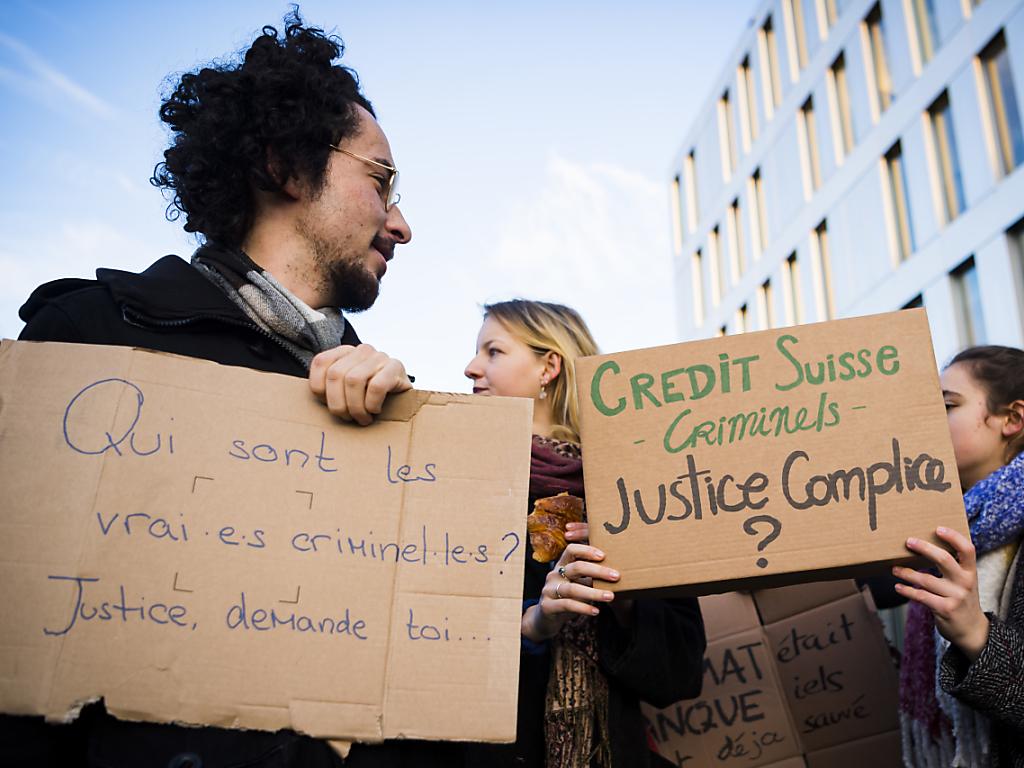 Qui sont les
vrai·e·s criminel·le·s?
Justice, demande toi...
CREDIT SUISSE
- CRIMINELS -
JUSTICE COMPLICE
?
MAT était
NQUE iels
déjà sauvé